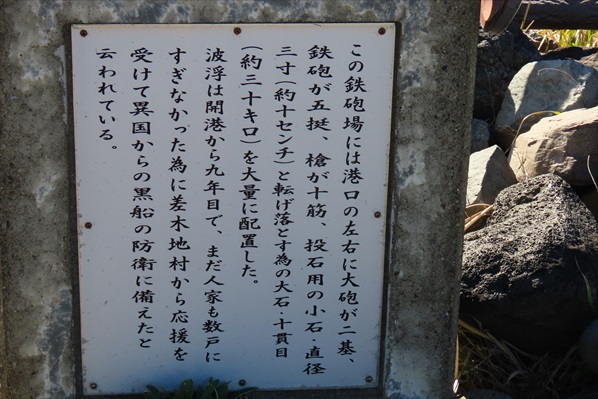 この鉄砲場には港口の左右に大砲が二基、
鉄砲が五挺、槍が十筋、投石用の小石・直径
三寸(約十センチ)と転げ落とす為の大石・十貫目
(約三十キロ)を大量に配置した。
波浮は開港から九年目で、まだ人家も数戸に
すぎなかった為に差木地村から応援を
受けて異国からの黒船の防衛に備えたと
云われている。